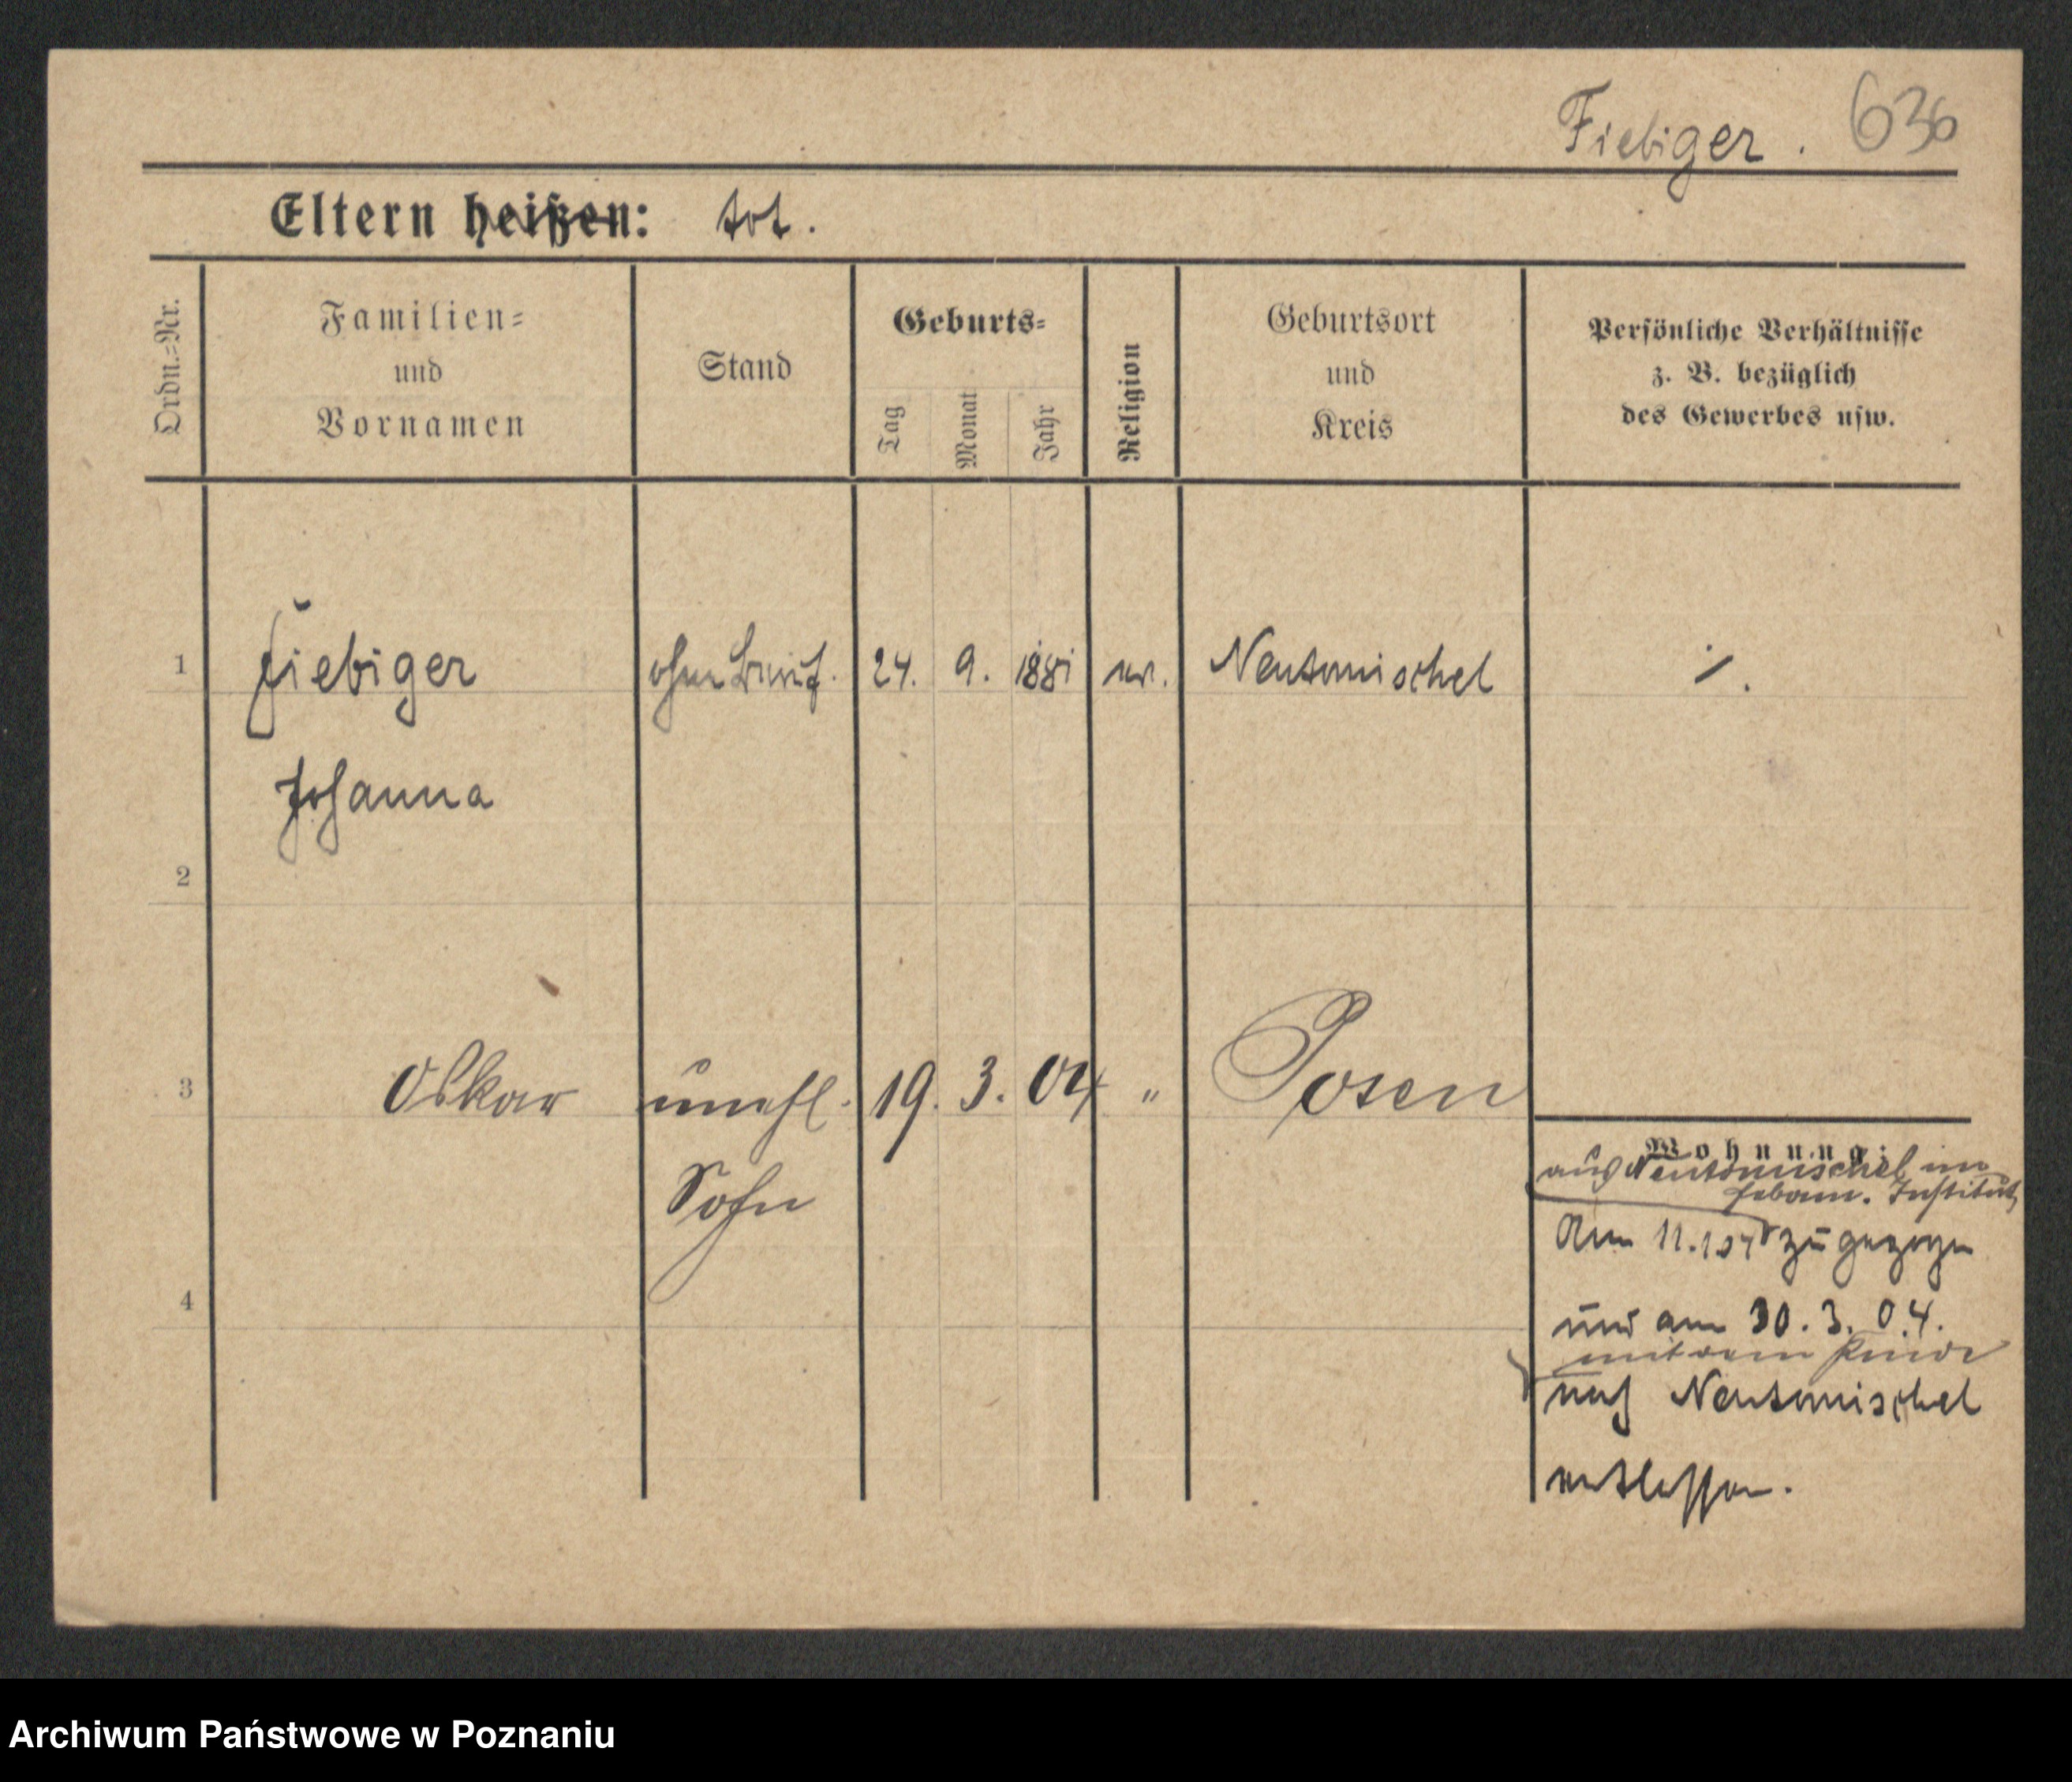 Fiebiger. 636
Eltern heißen: tot.
Ordn.=Nr.
Familien=
und
Vornamen
Stand
Geburts=
Tag
Monat
Jahr
Religion
Geburtsort
und
Kreis
Persönliche Verhältnisse
z. B. bezüglich
des Gewerbes usw.
1 Fiebiger ohne Beruf. 24. 9. 1881 ev. Neutomischel ./.
Johanna
2
3 Oskar unehl. 19. 3. 04 " Posen
Sohn
4
Wohnung:
aus Neutomischel im
Hebamm. Institut
Am 11.1 04 zugezogen
und am 30. 3. 04.
mit dem Kinde
nach Neutomischel
entlassen.
Archiwum Państwowe w Poznaniu